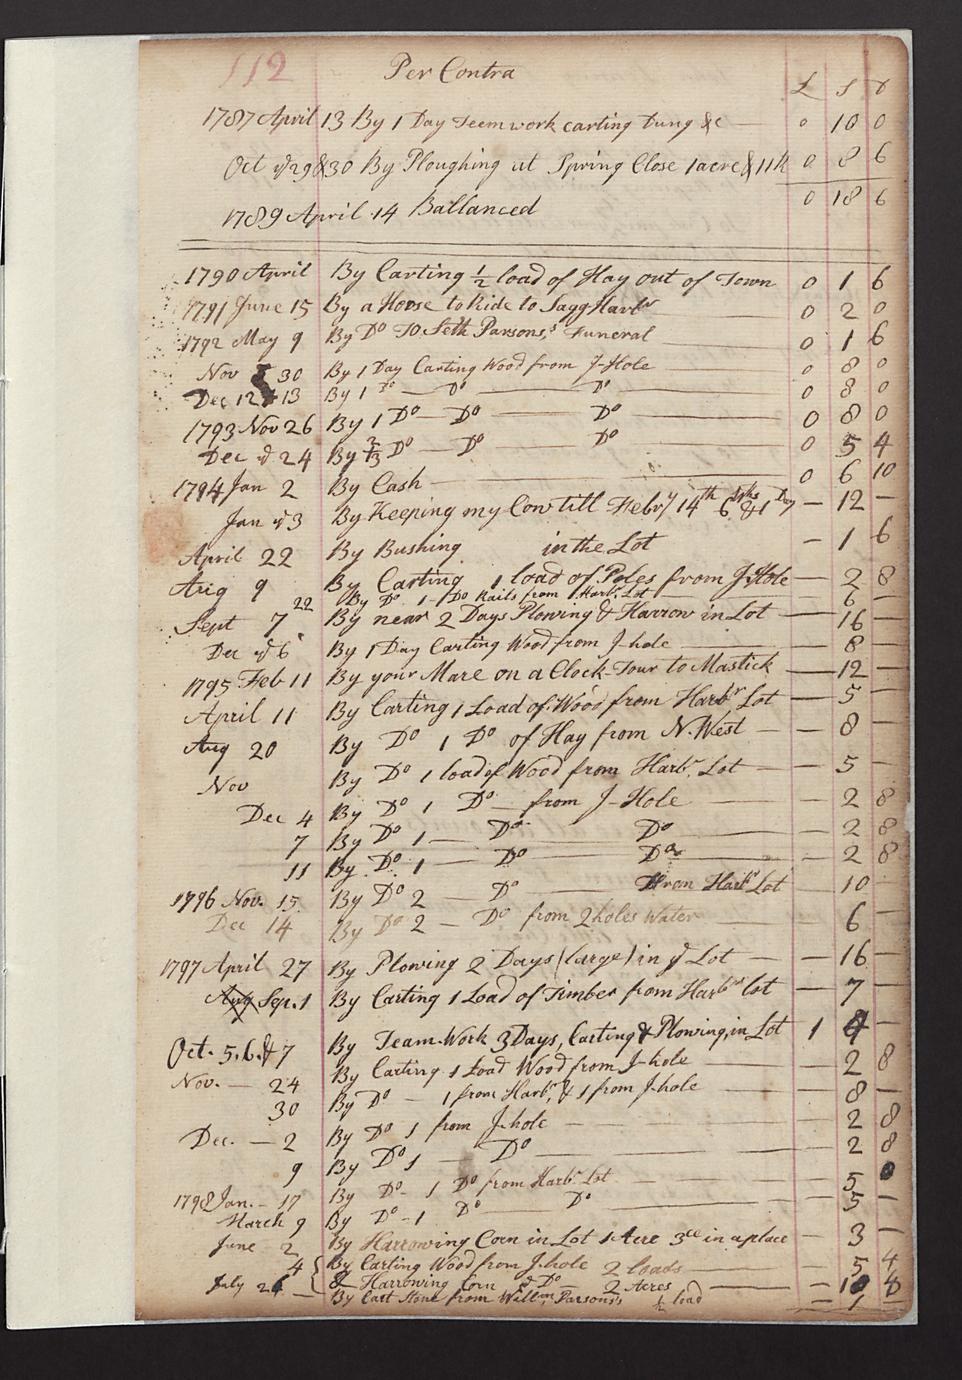 112 Per Contra
£ S D
1787 April 13 By 1 Day Teemwork carting Dung &c 0 10 0
Oct ye 29 & 30 By Ploughing at Spring Close 1 acre & 11 0 8 6
0 18 6
1789 April 14 Ballanced
1790 April By Carting ½ load of Hay out of Town 0 1 6
1791 June 15 By a Horse to Ride to Sagg Harbr 0 2 0
1792 May 9 By Do To Seth Parsons,s Funeral 0 1 6
Nov 30 By 1 Day Carting Wood from J-Hole 0 8 0
Dec 12 13 By 1 Do Do Do 0 8 0
1793 Nov 26 By 1 Do Do Do 0 8 0
Dec ye 24 By 2/3 Do Do Do 0 5 4
1794 Jan 2 By Cash 0 6 10
Jan ye 3 By Keeping my Cow till Febry 14th 6 wks & 1 Day — 12 —
April 22 By Bushing in the Lot — 1 6
Aug 9 By Carting 1 load of Poles from J-Hole — 2 8
22 By Do 1 Do Rails from Harbr Lot — 6 —
Sept 7 By near 2 Days Plowing & Harrow in Lot — 16 —
Dec ye 6 By 1 Day Carting Wood from J-hole — 8 —
1795 Feb 11 By your Mare on a Clock-Tour to Mastick — 12 —
April 11 By Carting 1 Load of Wood from Harbr Lot — 5 —
Aug 20 By Do 1 Do of Hay from N-West — 8 —
Nov By Do 1 load of Wood from Harbr Lot — 5 —
Dec 4 By Do 1 Do from J-Hole — 2 8
7 By Do 1 — Do Do — 2 8
11 By Do 1 — Do Do — 2 8
1796 Nov. 15 By Do 2 Do from Harbr Lot — 10 —
Dec 14 By Do 2 — Do from 2 holes Water 6 —
1797 April 27 By Plowing 2 Days (large) in ye Lot — 16 —
Aug Sep. 1 By Carting 1 Load of Timber from Harbr lot — 7 —
Oct. 5. 6. & 7 By Team-Work 3 Days, Carting & Plowing, in Lot 1 4 —
Nov. — 24 By Carting 1 Load Wood from J-hole 2 8
30 By Do — 1 from Harbr, & 1 from J-hole — 8 —
Dec. — 2 By Do 1 from J-hole — 2 8
9 By Do 1 — Do — 2 8
1798 Jan. - 17 By Do - 1 Do from Harbr Lot 5 0
March 9 By Do - 1 Do Do 5 —
June 2 By Harrowing Corn in Lot 1 Acre 3ce in a place — 3 —
4 By Carting Wood from J-hole 2 loads — 5 4
& Harrowing Corn ye Do — 2 Acres — 10 8
July 26 — By Cart Stone from Willm Parsons's ½ load — 1 —